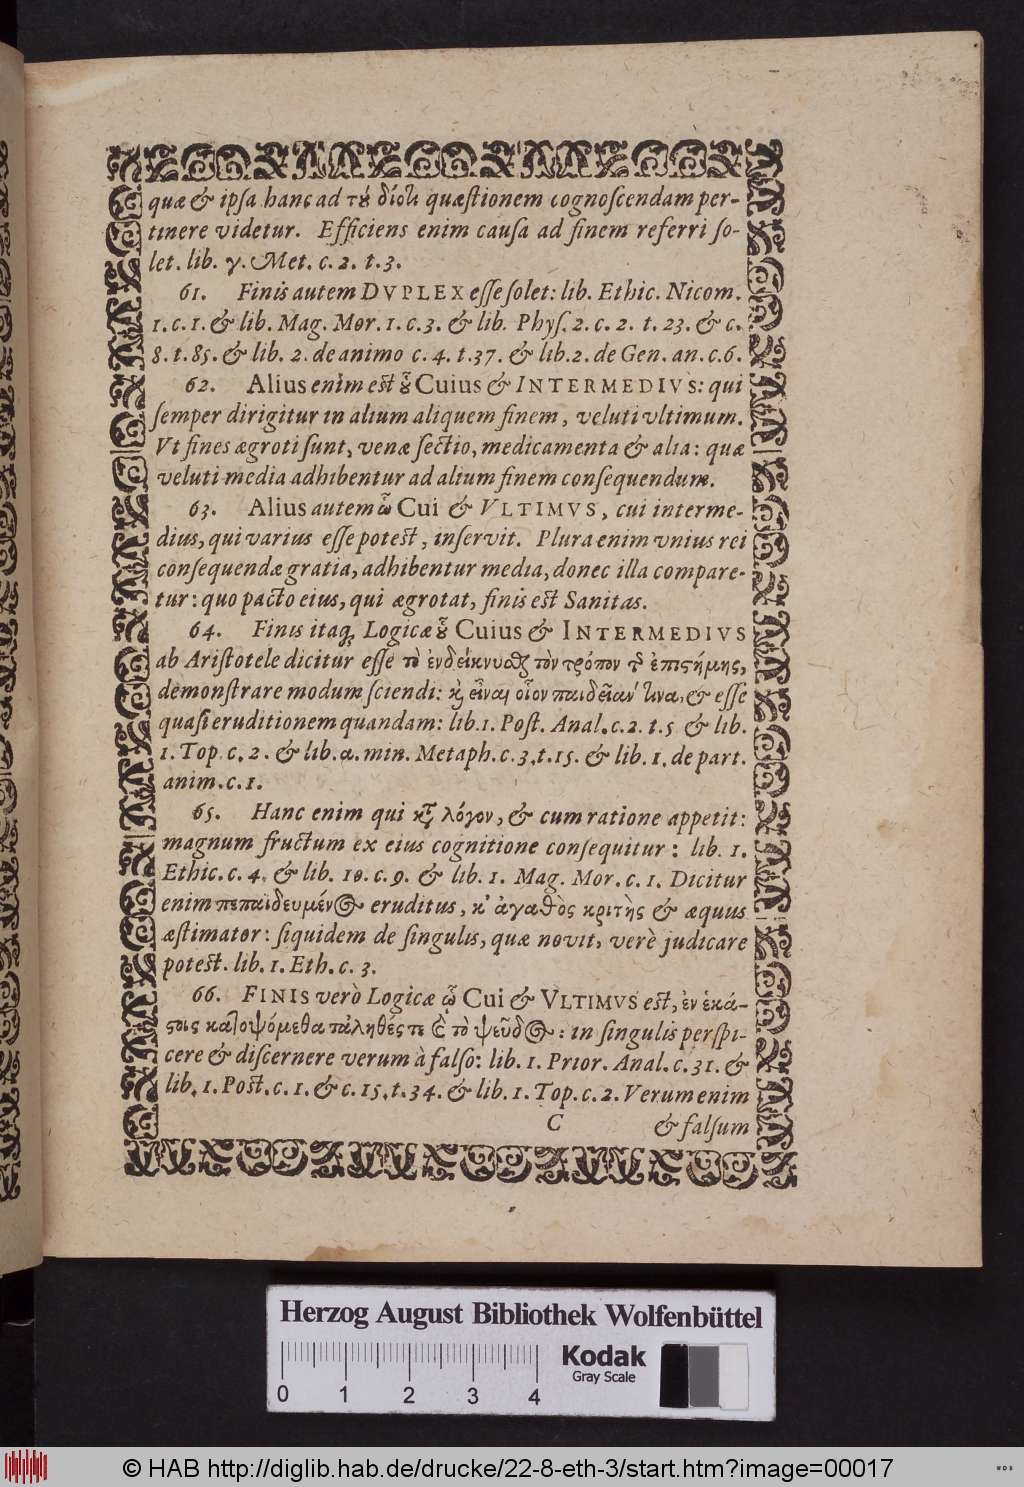 quæ & ipsa hanc ad τȣ͂ διότι quæstionem cognoscendam per-
tinere videtur. Efficiens enim causa ad finem referri so-
let. lib. γ. Met. c. 2. t. 3.
61. Finis autem DVPLEX esse solet: lib. Ethic. Nicom.
1. c. 1. & lib. Mag. Mor. 1. c. 3. & lib. Phys. 2. c. 2. t. 23. & c.
8. t. 85. & lib. 2. de animo c. 4. t. 37. & lib. 2. de Gen. an. c. 6.
62. Alius enim est ȣ̔͂ Cuius & INTERMEDIVS: qui
semper dirigitur in alium aliquem finem, veluti vltimum.
Vt fines ægroti sunt, venæ sectio, medicamenta & alia: quæ
veluti media adhibentur ad alium finem consequendum.
63. Alius autem ᾧ Cui & VLTIMVS, cui interme-
dius, qui varius esse potest, inservit. Plura enim vnius rei
consequendæ gratia, adhibentur media, donec illa compare-
tur: quo pacto eius, qui ægrotat, finis est Sanitas.
64. Finis itaq; Logicæ ȣ̔͂ Cuius & INTERMEDIVS
ab Aristotele dicitur esse τὸ ἐνδείκνυσθαι τὸν τρόπον τ῀ ἐπιϛήμης,
demonstrare modum sciendi: κ̀ εἶναι οἷον παιδείαν τινα, & esse
quasi eruditionem quandam: lib. 1. Post. Anal. c. 2. t. 5 & lib.
1. Top. c. 2. & lib. α. min. Metaph. c. 3. t. 15. & lib. 1. de part.
anim. c. 1.
65. Hanc enim qui κτ̀ λόγον, & cum ratione appetit:
magnum fructum ex eius cognitione consequitur: lib. 1.
Ethic. c. 4. & lib. 10. c. 9. & lib. 1. Mag. Mor. c. 1. Dicitur
enim πεπαιδευμένος eruditus, κ' ἀγαθὸς κριτὴς & æquus
æstimator: siquidem de singulis, quæ novit, verè judicare
potest. lib. 1. Eth. c. 3.
66. FINIS verò Logicæ ᾧ Cui & VLTIMVS est, ἐν ἑκά-
ϛοις κατοψόμεθα τἀληθές τε κ̀ τὸ ψεῦδος: in singulis perspi-
cere & discernere verum à falso: lib. 1. Prior. Anal. c. 31. &
lib. 1. Post. c. 1. & c. 15. t. 34. & lib. 1. Top. c. 2. Verum enim
C & falsum
Herzog August Bibliothek Wolfenbüttel
0 1 2 3 4
Kodak
Gray Scale
© HAB http://diglib.hab.de/drucke/22-8-eth-3/start.htm?image=00017